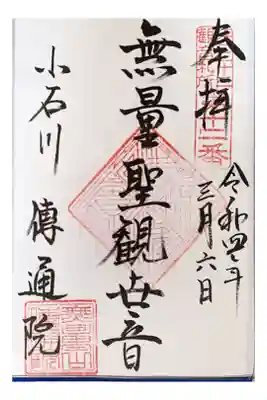 奉拝
令和四年
三月六日
無量聖観世音
小石川
傳通院